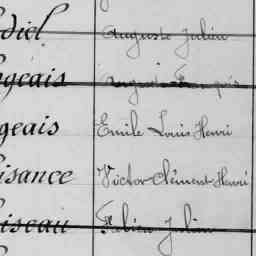 diel Auguste Julien
geais Auguste François
geais Emile Louis Henri
isance Victor Clément Henri
iseau Fabien Julien